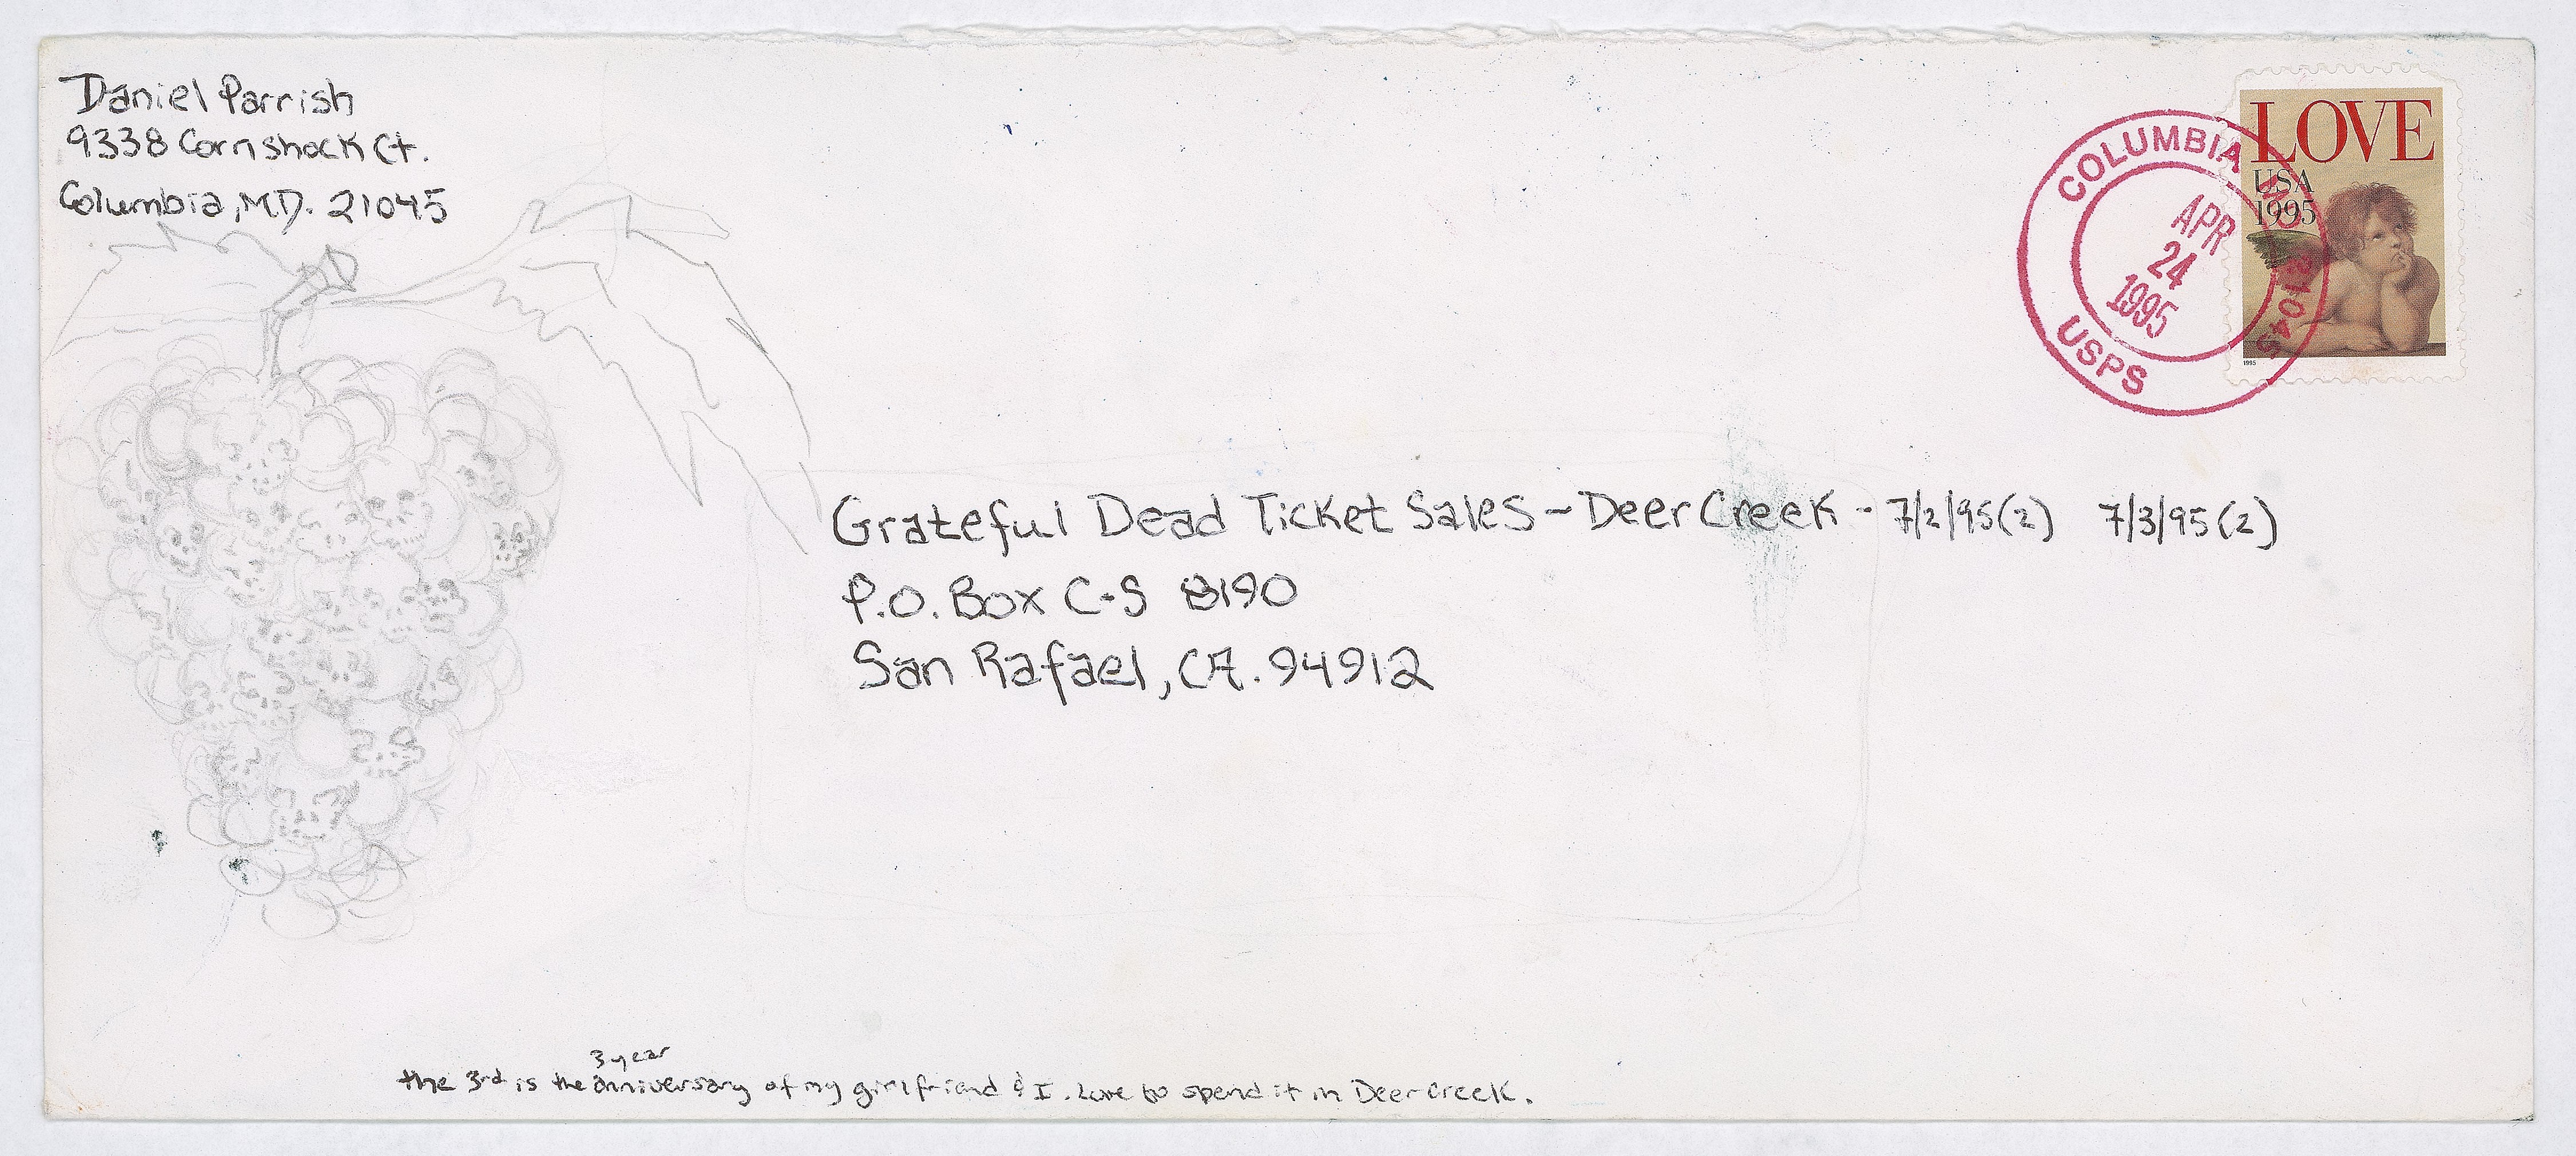 Daniel Parrish
9338 Cornshock Ct.
Columbia, MD. 21045
LOVE
USA
1995
1995
COLUMBIA
21045
USPS
APR
24
1995
Grateful Dead Ticket Sales - Deer Creek - 7/2/95(2) 7/3/95(2)
P.O. Box C-S 8190
San Rafael, CA. 94912
3 year
the 3rd is the anniversary of my girlfriend & I. Love to spend it in Deer Creek.